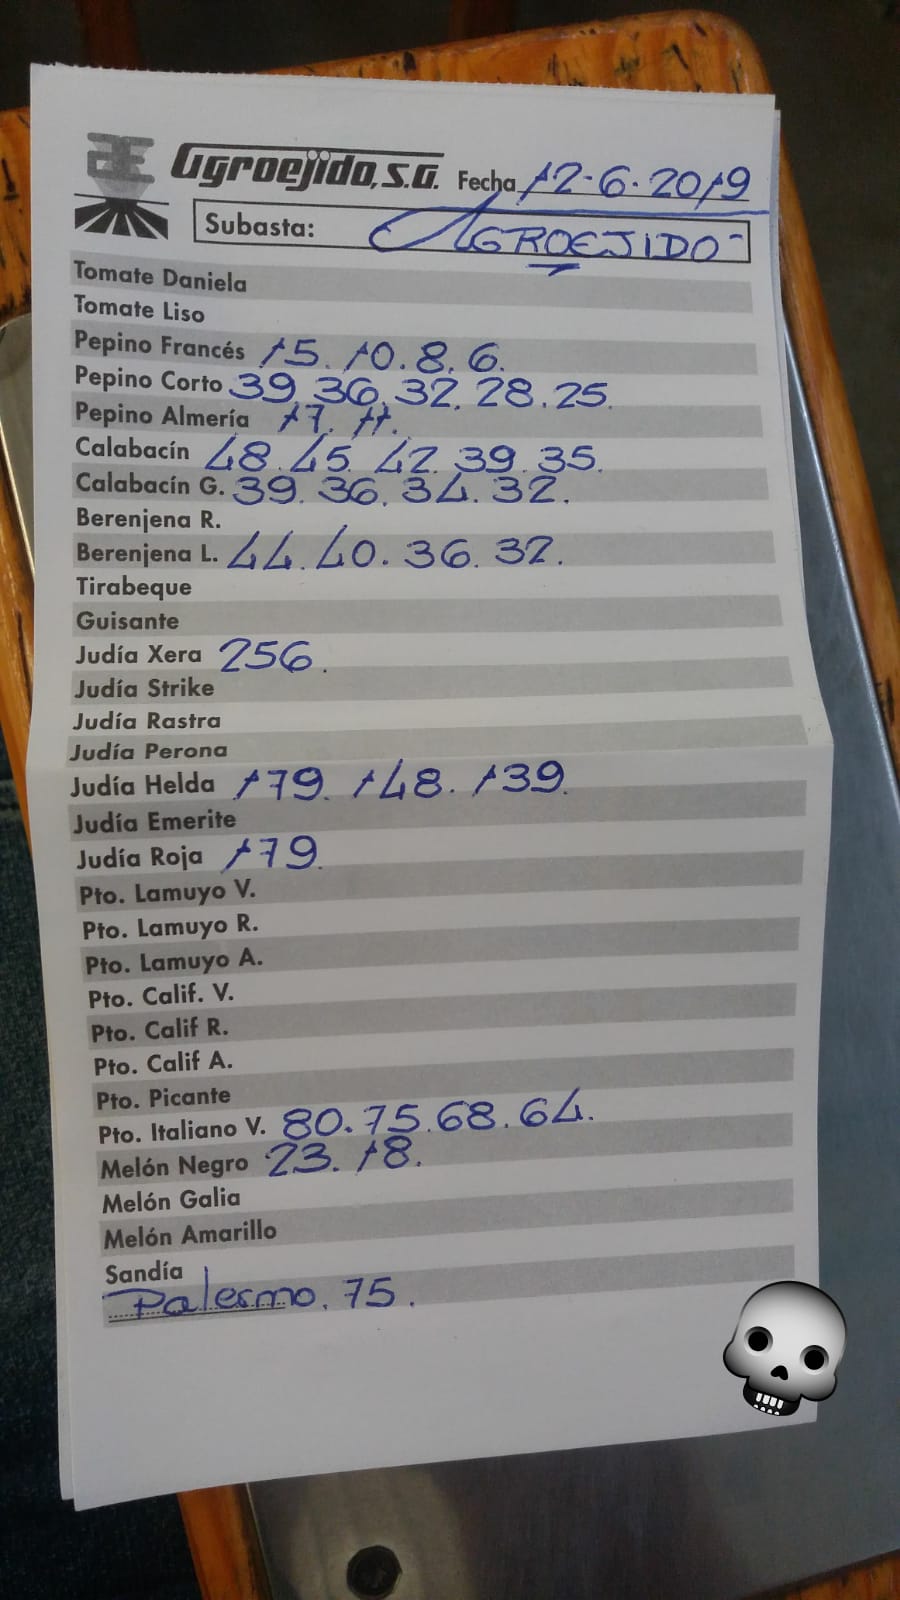 Agroejido, S.A. Fecha 12-6-2019
Subasta: AGROEJIDO-
Tomate Daniela
Tomate Liso
Pepino Francés 15. 10. 8. 6.
Pepino Corto 39. 36. 32. 28. 25.
Pepino Almería 17. 11.
Calabacín 48. 45. 42. 39. 35.
Calabacín G. 39. 36. 34. 32.
Berenjena R.
Berenjena L. 44. 40. 36. 32.
Tirabeque
Guisante
Judía Xera 256.
Judía Strike
Judía Rastra
Judía Perona
Judía Helda 179. 148. 139.
Judía Emerite
Judía Roja 179.
Pto. Lamuyo V.
Pto. Lamuyo R.
Pto. Lamuyo A.
Pto. Calif. V.
Pto. Calif R.
Pto. Calif A.
Pto. Picante
Pto. Italiano V. 80. 75. 68. 64.
Melón Negro 23. 18.
Melón Galia
Melón Amarillo
Sandía
Palermo. 75.